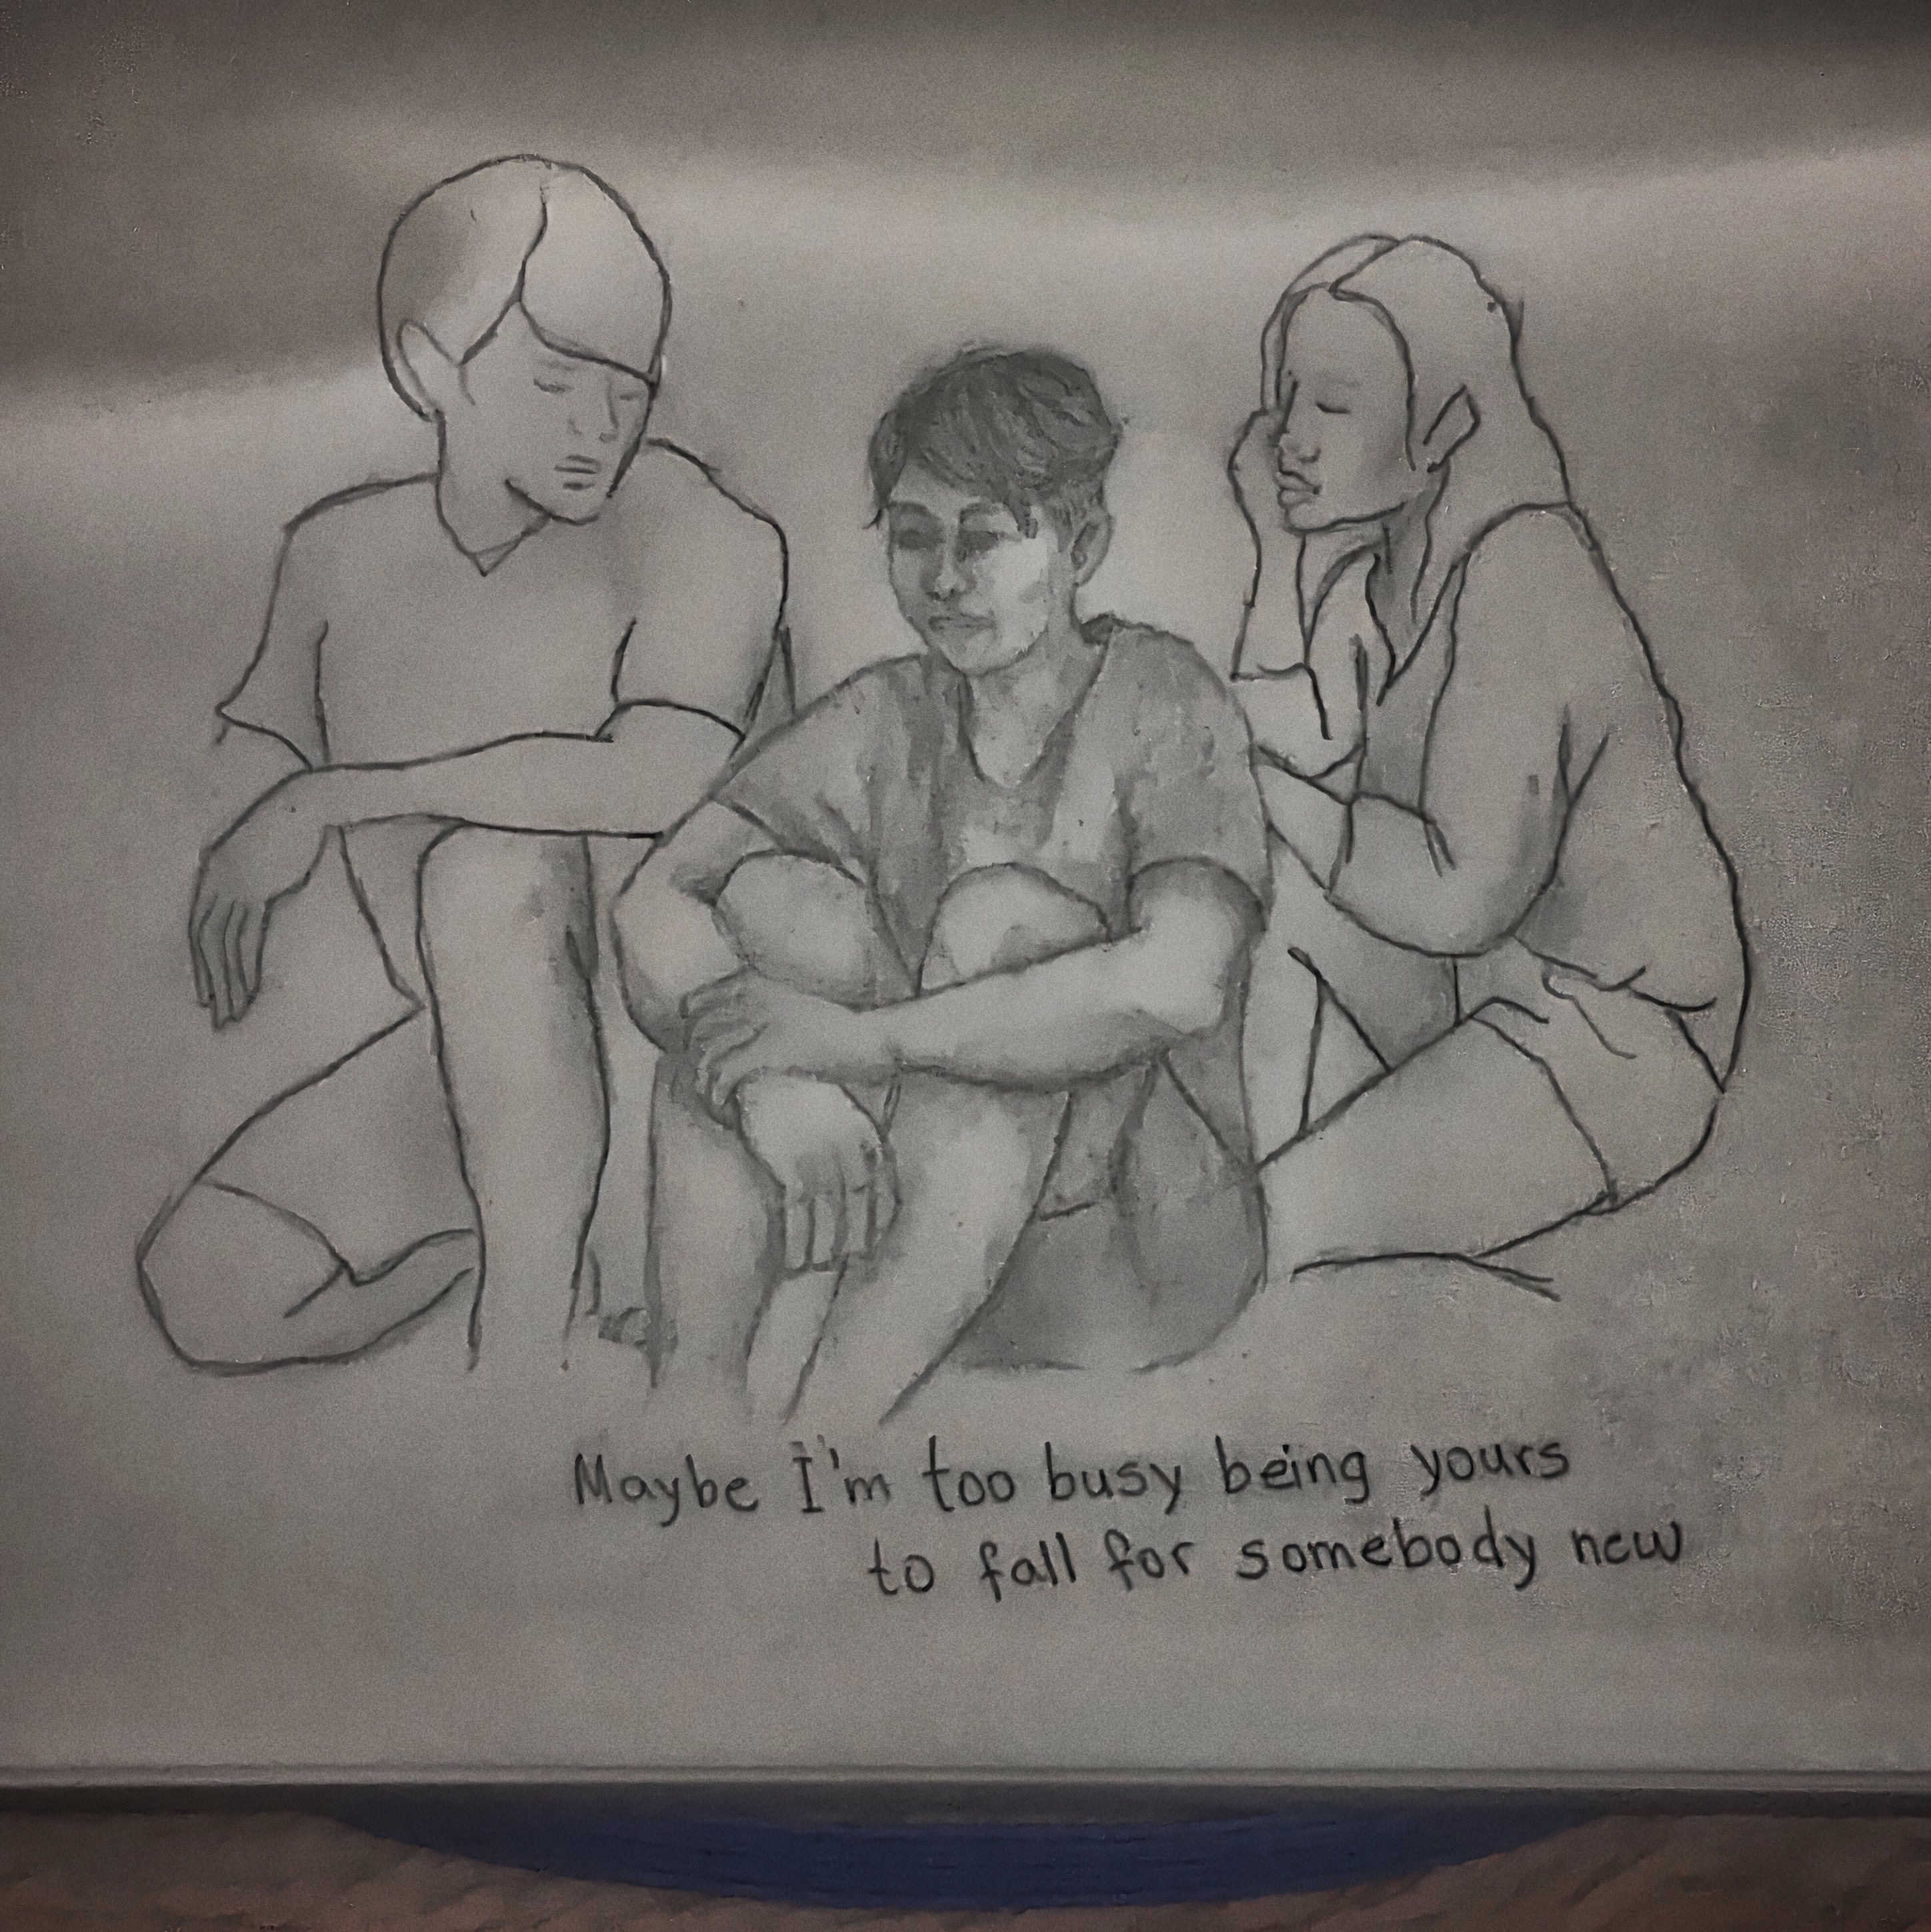 Maybe I'm too busy being yours
to fall for somebody new